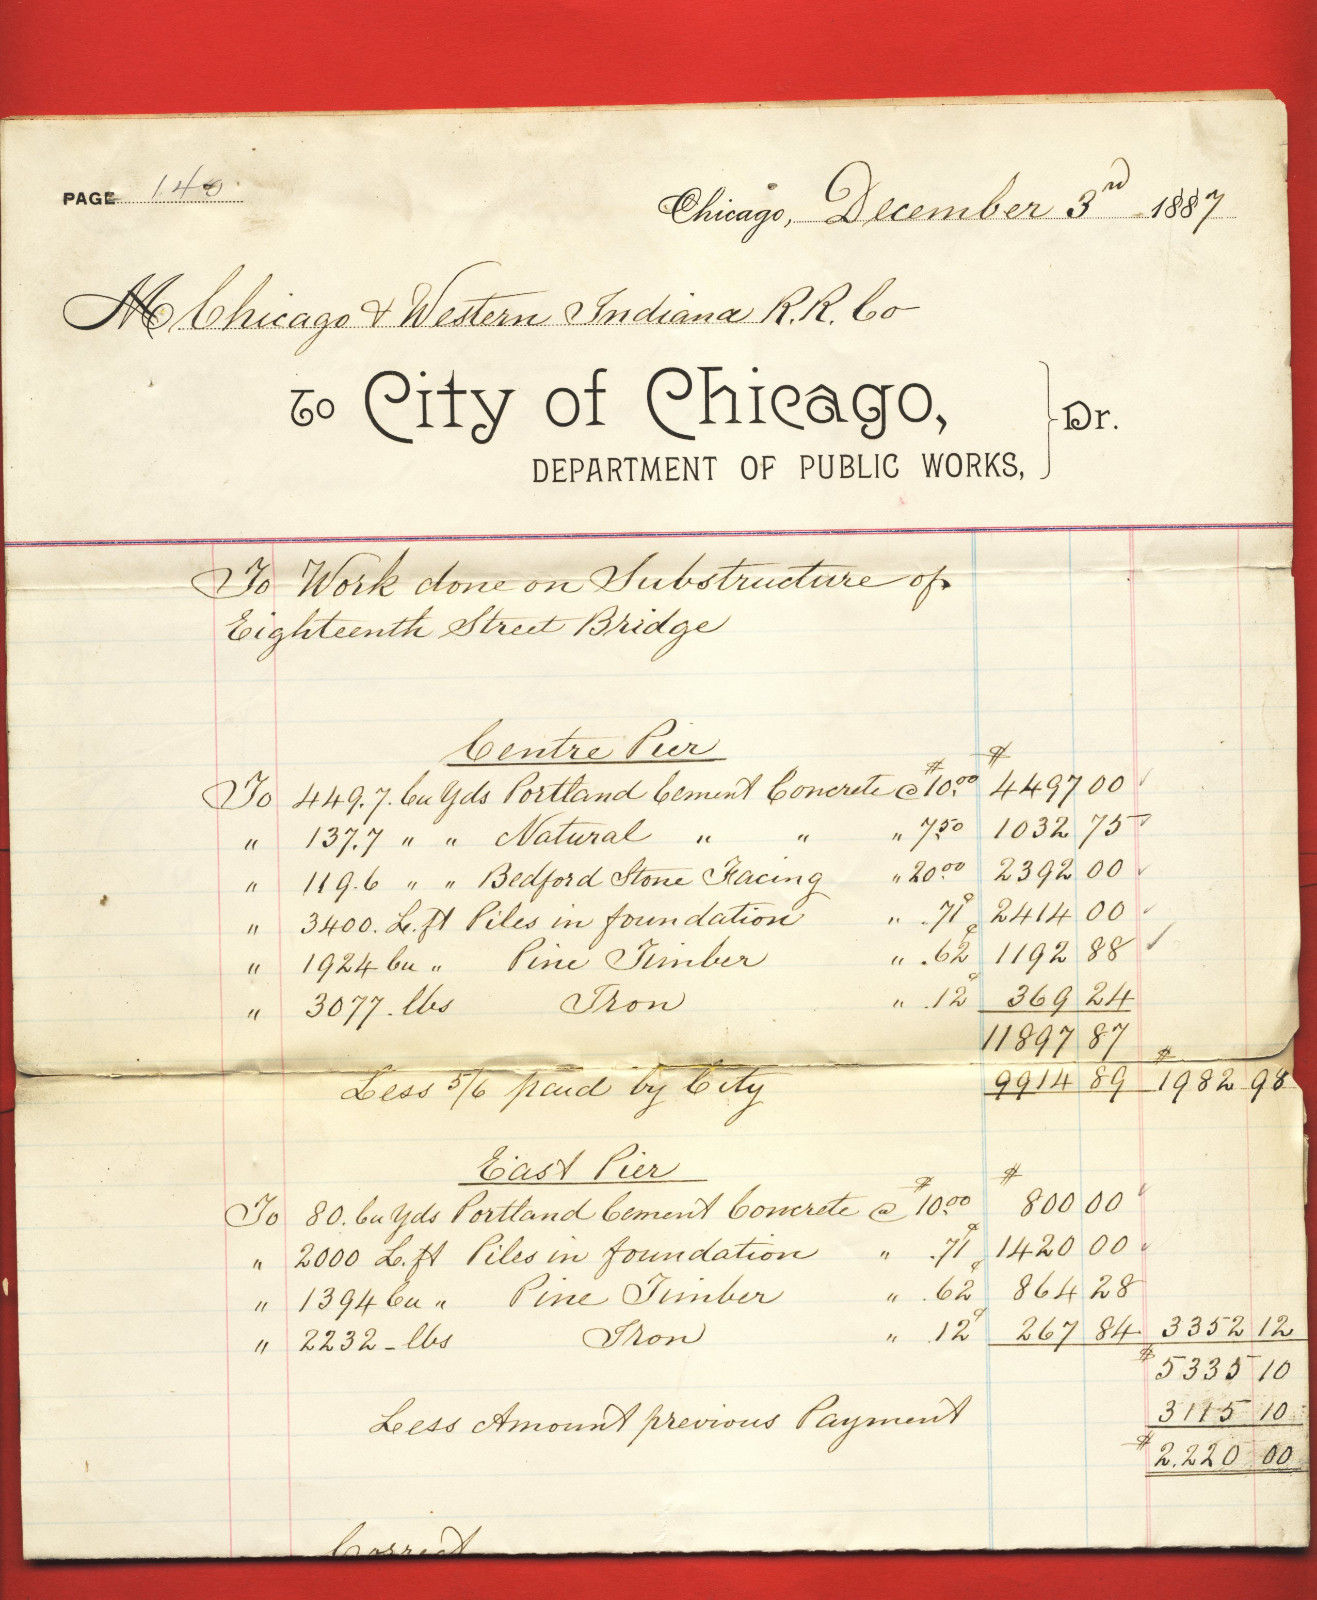 PAGE 140
Chicago, December 3rd 1887
M Chicago & Western Indiana R.R. Co
To City of Chicago, Dr.
DEPARTMENT OF PUBLIC WORKS,
To Work done on Substructure of
Eighteenth Street Bridge
Centre Pier $
To 449.7. Cu Yds Portland Cement Concrete @ $10.00 4497 00
" 137.7 " " Natural " " " 7.50 1032 75
" 119.6 " " Bedford Stone Facing " 20.00 2392 00
" 3400. L. ft Piles in foundation " .71¢ 2414 00
" 1924 Cu " Pine Timber " .62¢ 1192 88
" 3077. lbs Iron " .12¢ 369 24
11897 87
Less 5/6 paid by City 9914 89 $1982 98
East Pier $
To 80. Cu Yds Portland Cement Concrete @ $10.00 800 00
" 2000 L. ft Piles in foundation " .71¢ 1420 00
" 1394 Cu " Pine Timber " .62¢ 864 28
" 2232 - lbs Iron " .12¢ 267 84 3352 12
$5335 10
Less Amount previous Payment 3115 10
$2.220 00
Correct